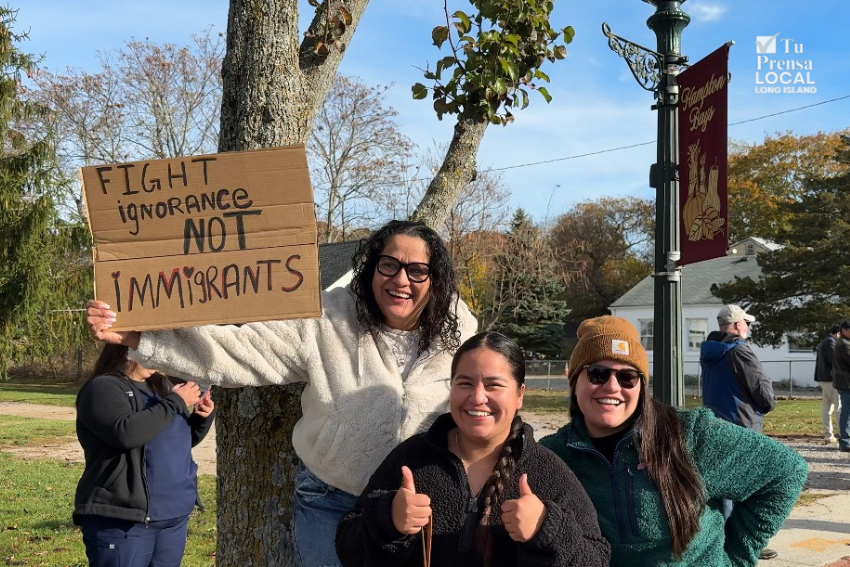 FIGHT
ignorance
NOT
IMMigRANTS
Hampton
Bays
Tu
Prensa
LOCAL
LONG ISLAND